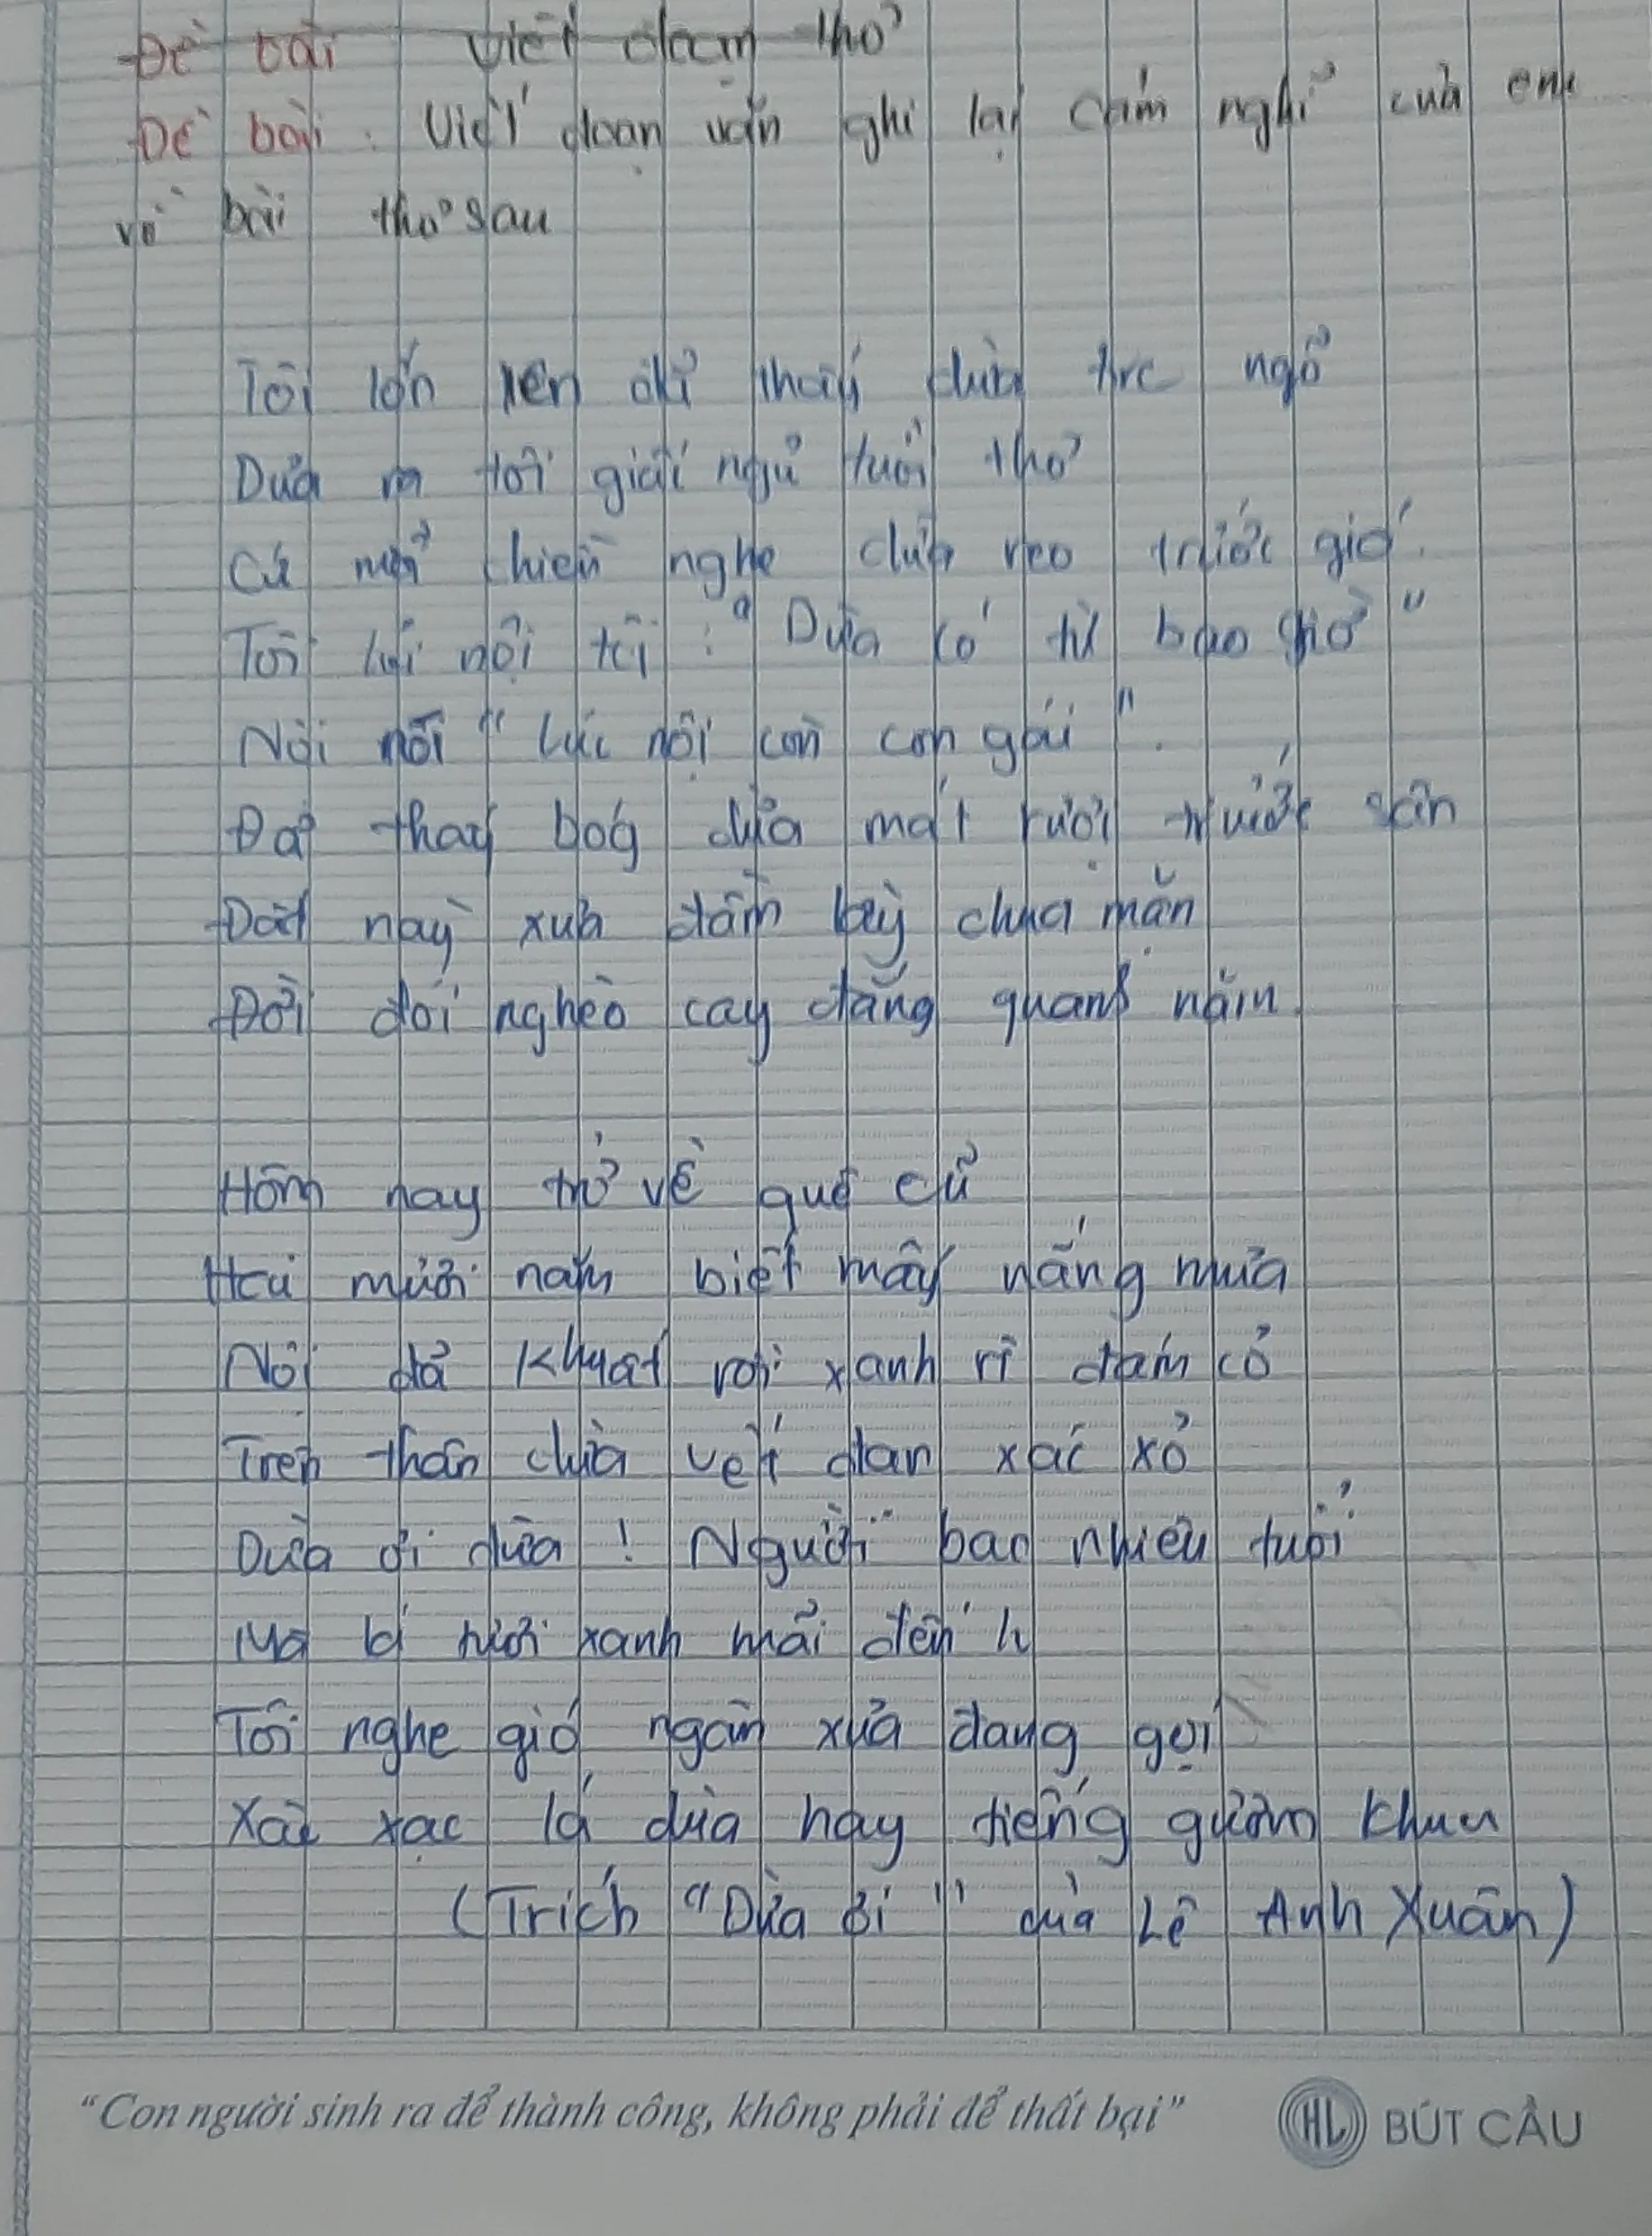 Đề bài viết đoạn thơ
Đề bài : Viết đoạn văn ghi lại cảm nghĩ của em
về bài thơ sau
Tôi lớn lên đã thấy dừa trc ngõ
Dừa ru tôi giấc ngủ tuổi thơ
Cứ mỗi chiều nghe dừa reo trước gió.
Tôi hỏi nội tôi : "Dừa có từ bao giờ"
Nội nói "Lúc nội còn con gái".
Đã thấy bóg dừa mát rượi trước sân
Đất này xưa đầm lầy chua mặn
Đời đói nghèo cay đắng quanh năm.
Hôm nay trở về quê cũ
Hai mươi năm biết mấy nắng mưa
Nội đã khuất rồi xanh rì đám cỏ
Trên thân dừa vết đạn xác xơ
Dừa ơi dừa ! Người bao nhiêu tuổi
Mà lá tươi xanh mãi đến h
Tôi nghe gió ngàn xưa đang gọi
Xào xạc lá dừa hay tiếng gươm khua
(Trích "Dừa ơi" của Lê Anh Xuân)
"Con người sinh ra để thành công, không phải để thất bại"
HL BÚT CẦU